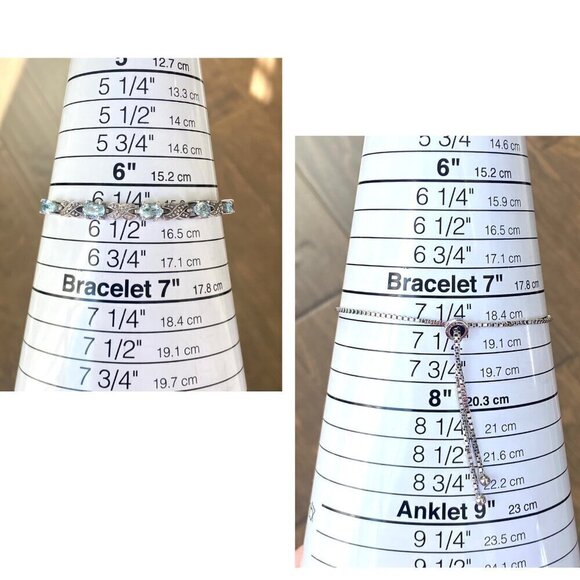 5" 12.7 cm
5 1/4" 13.3 cm
5 1/2" 14 cm
5 3/4" 14.6 cm
6" 15.2 cm
6 1/4"
6 1/2" 16.5 cm
6 3/4" 17.1 cm
Bracelet 7" 17.8 cm
7 1/4" 18.4 cm
7 1/2" 19.1 cm
7 3/4" 19.7 cm
5 3/4 14.6 cm
6" 15.2 cm
6 1/4" 15.9 cm
6 1/2" 16.5 cm
6 3/4" 17.1 cm
Bracelet 7" 17.8 cm
7 1/4" 18.4 cm
7 1/ 19.1 cm
7 3/4" 19.7 cm
8" 20.3 cm
8 1/4 21 cm
8 1/2 21.6 cm
8 3/4" 22.2 cm
Anklet 9" 23 cm
9 1/4" 23.5 cm
9 1/2" 24.1 cm